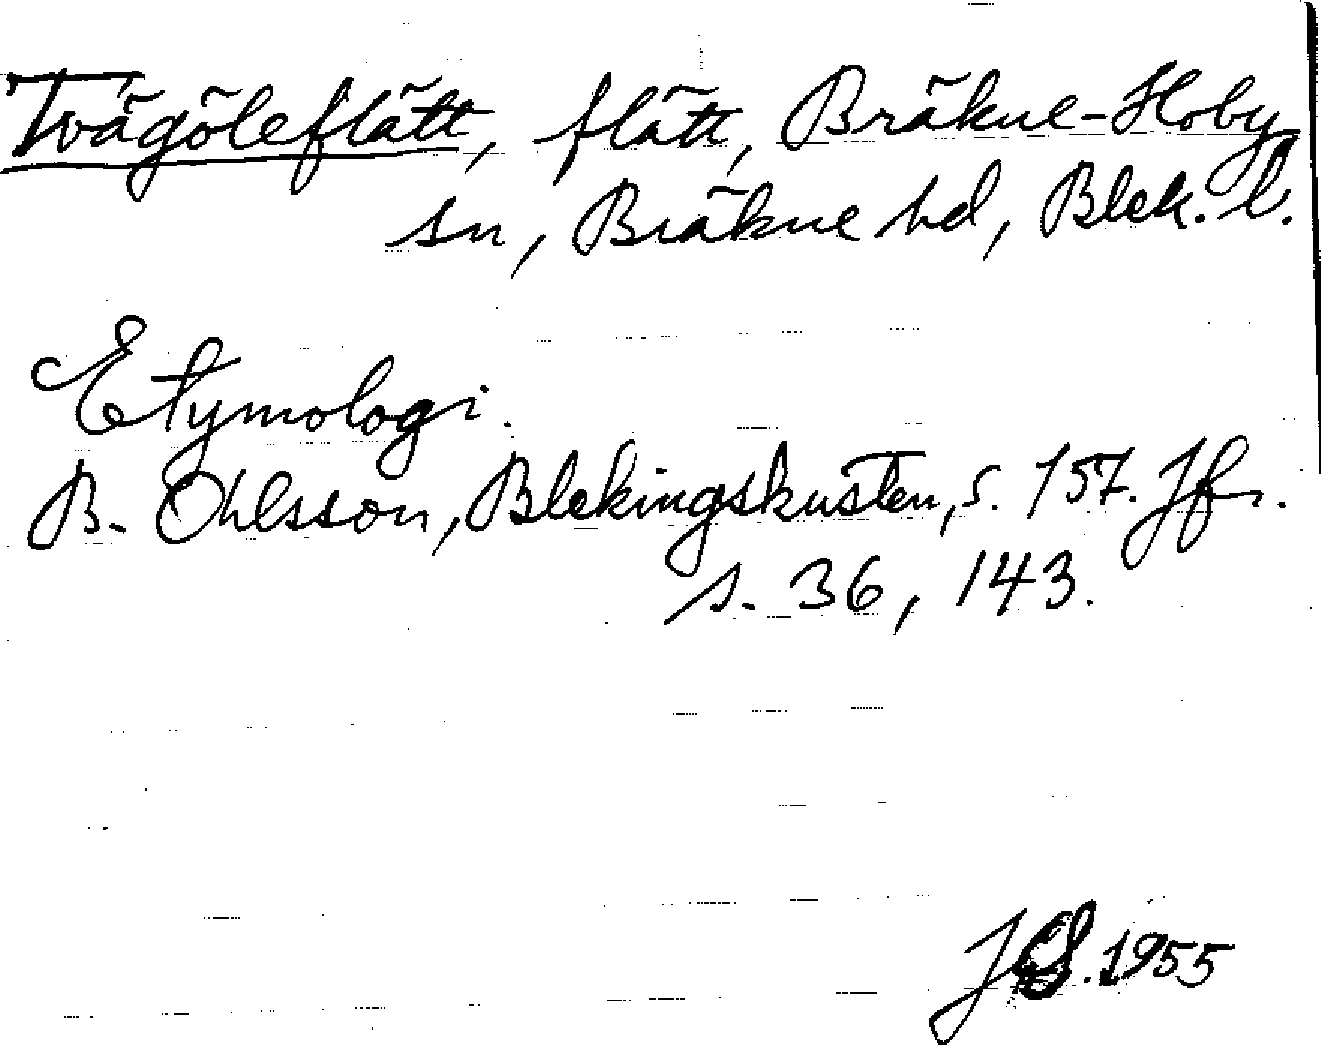 Tvägöleflätt, flätt, Bräkne-Hoby
sn, Bräkne hd, Blek. l.
Etymologi.
B. Ohlsson, Blekingskusten, s. 157. Jfr.
s. 36, 143.
1955